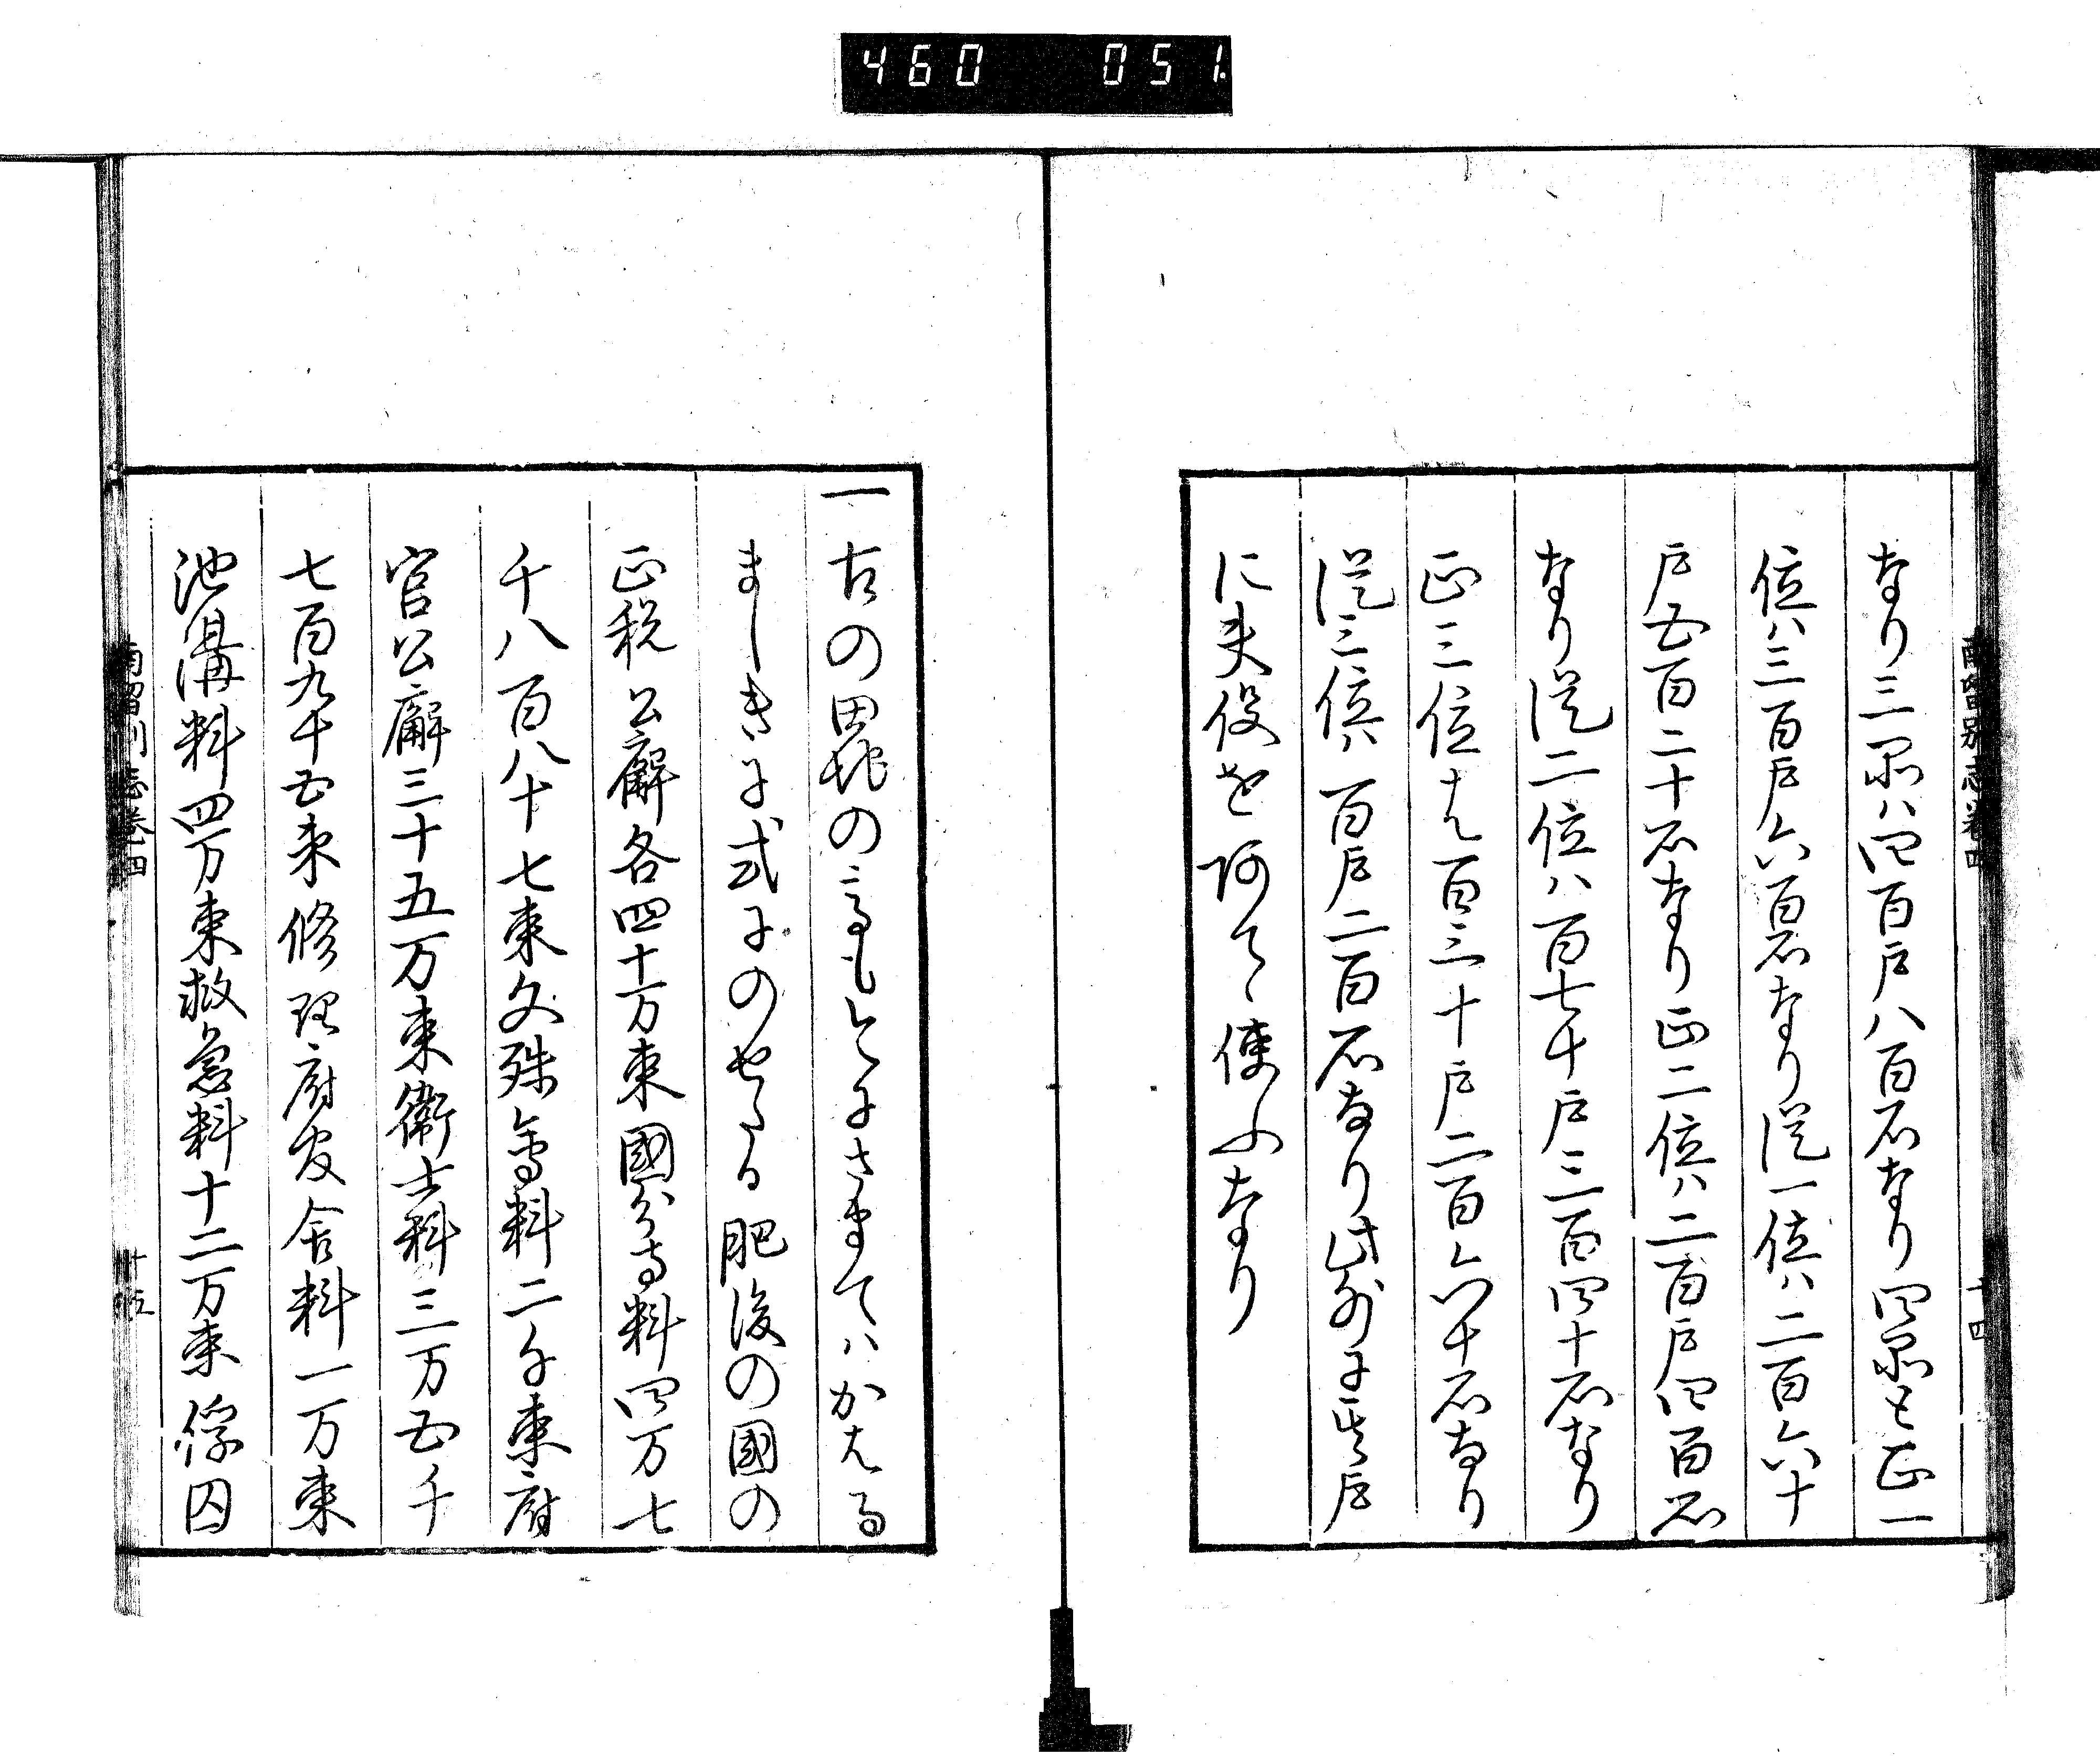 460 051
南留別志巻四
十四
なり三品ハ四百戸八百石なり四品と正一
位ハ三百戸六百石なり従一位ハ二百六十
戸五百二十石なり正二位ハ二百戸四百石
なり従二位ハ百七十戸三百四十石なり
正三位は百三十戸二百六十石なり
従三位ハ百戸二百石なり此外に其戸
に夫役を阿てゝ使ふなり
一古の田地の高も今にさまてハかはる
ましきに式にのせたる肥後の國の
正税公廨各四十万束國分寺料四万七
千八百八十七束文殊會料二千束府
官公廨三十五万束衛士料三万五千
七百九十五束修理府官舎料一万束
池溝料四万束救急料十二万束俘囚
南留別志巻四
十五